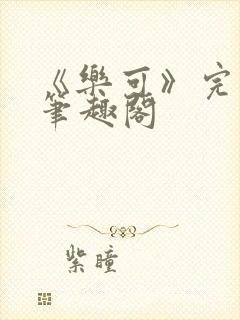 《樂可》完
筆趣閣
紫瞳